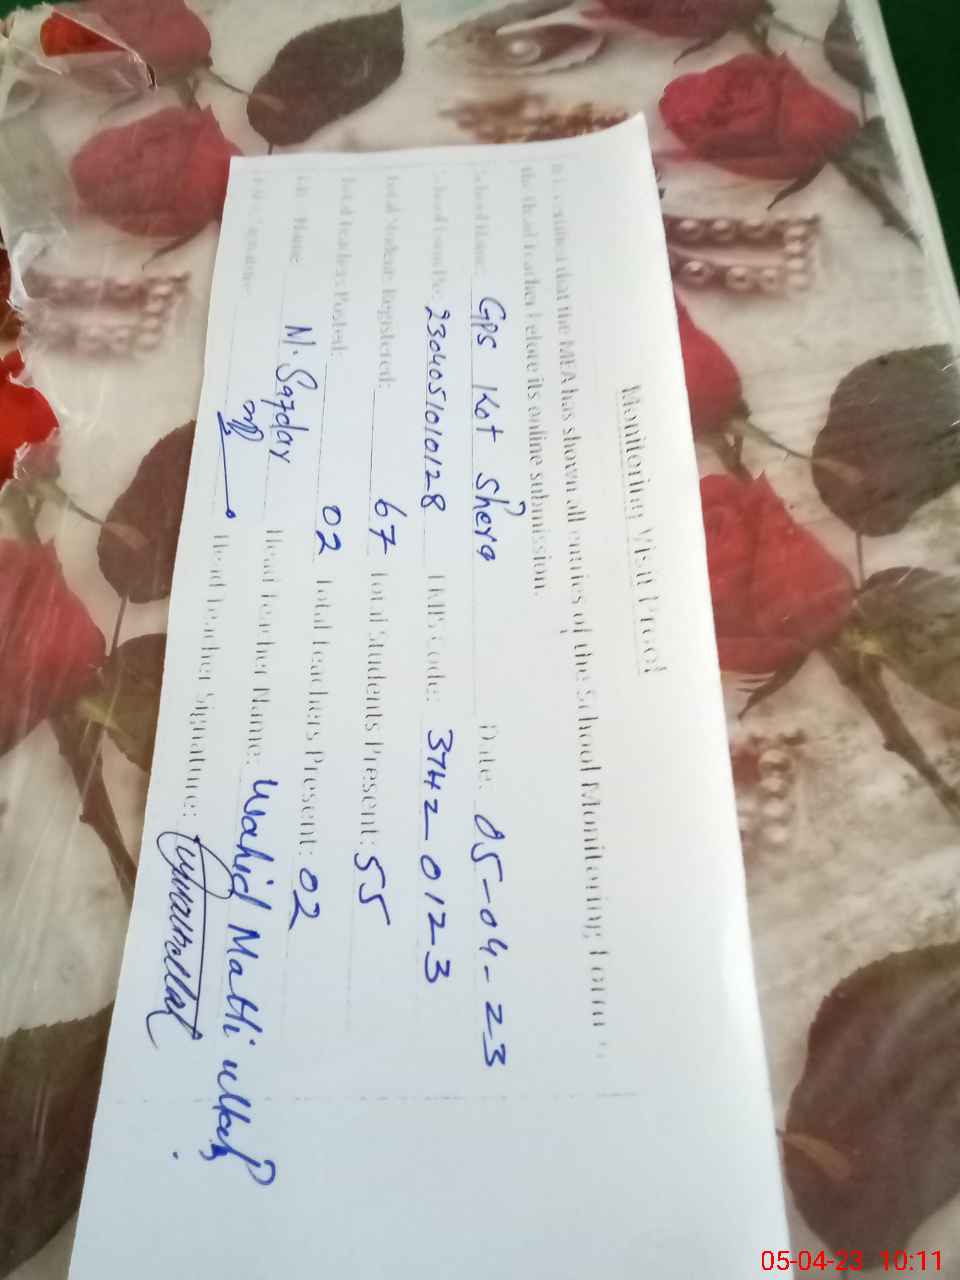 Monitoring Visit Proof
that the MEA has shown all entries of the School Monitoring Form to
the Head Teacher before its online submission.
School Name: GPS Kot Shera Date: 05-04-23
School Code: 23040510128 Code: 3742-0123
Total Student Registered: 67 Total Students Present: 55
Total Teachers Posted: 02 Total Teachers Present: 02
Name M. Safdar Head Teacher Name: Wahid
Head Teacher Signature:
05-04-23 10:11